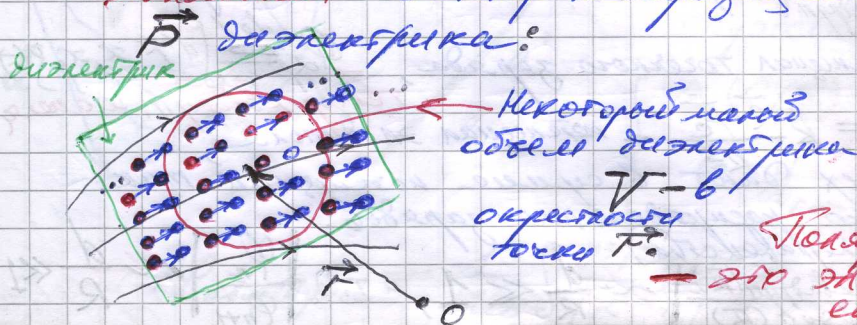 P диэлектрика:
диэлектрик
Некоторый малый
объем диэлектрика
V – в
окрестности
точки r:
— это
r
O